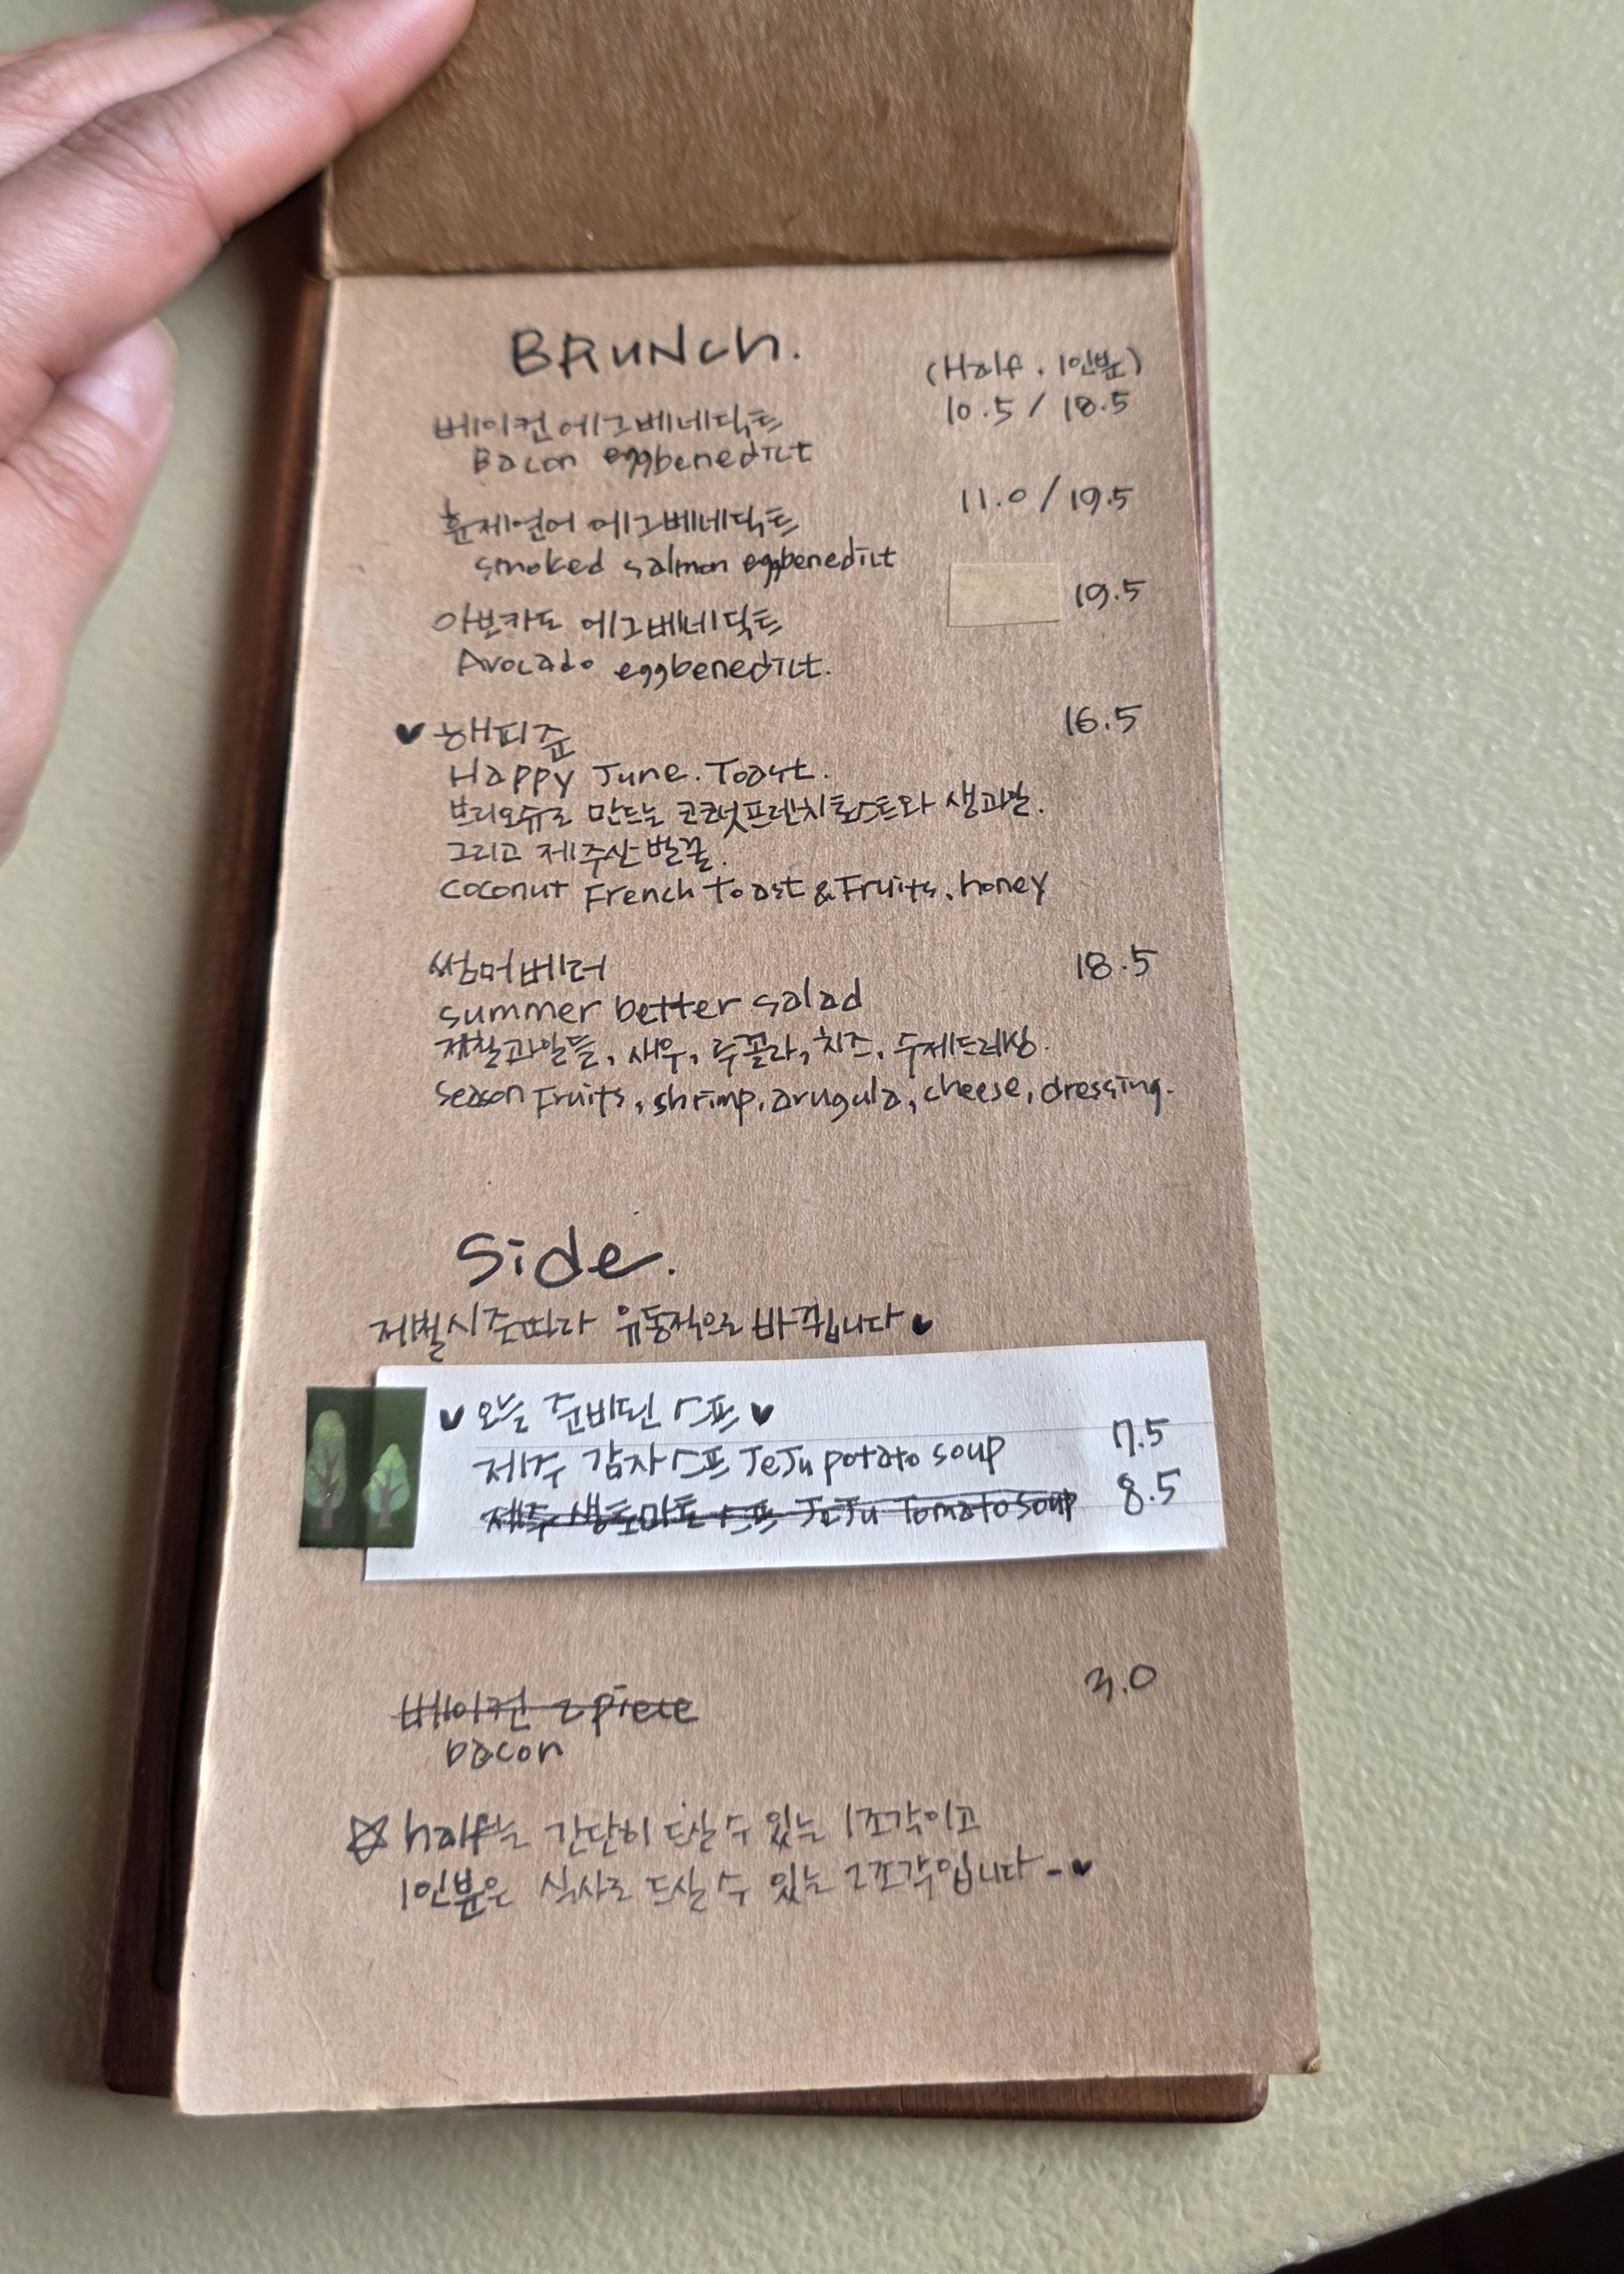 BRUNCH.
(Half . 1인분)
베이컨 에그베네딕트 10.5 / 18.5
Bacon eggbenedict
훈제연어 에그베네딕트 11.0 / 19.5
smoked salmon eggbenedict
아보카도 에그베네딕트 19.5
Avocado eggbenedict.
♥ 해피준 16.5
Happy June. Toast.
브리오슈로 만드는 코코넛프렌치토스트와 생과일.
그리고 제주산 벌꿀.
coconut French toast & Fruits, honey
썸머베러 18.5
summer better salad
제철과일들, 새우, 루꼴라, 치즈, 수제드레싱.
season Fruits, shrimp, arugula, cheese, dressing.
Side.
제철시즌따라 유동적으로 바뀝니다 ♥
♥ 오늘 준비된 스프 ♥
제주 감자스프 JeJu potato soup 7.5
제주 생토마토 스프 JeJu Tomato soup 8.5
베이컨 2 piece 3.0
bacon
☆ half는 간단히 드실 수 있는 1조각이고
1인분은 식사로 드실 수 있는 2조각입니다 - ♥